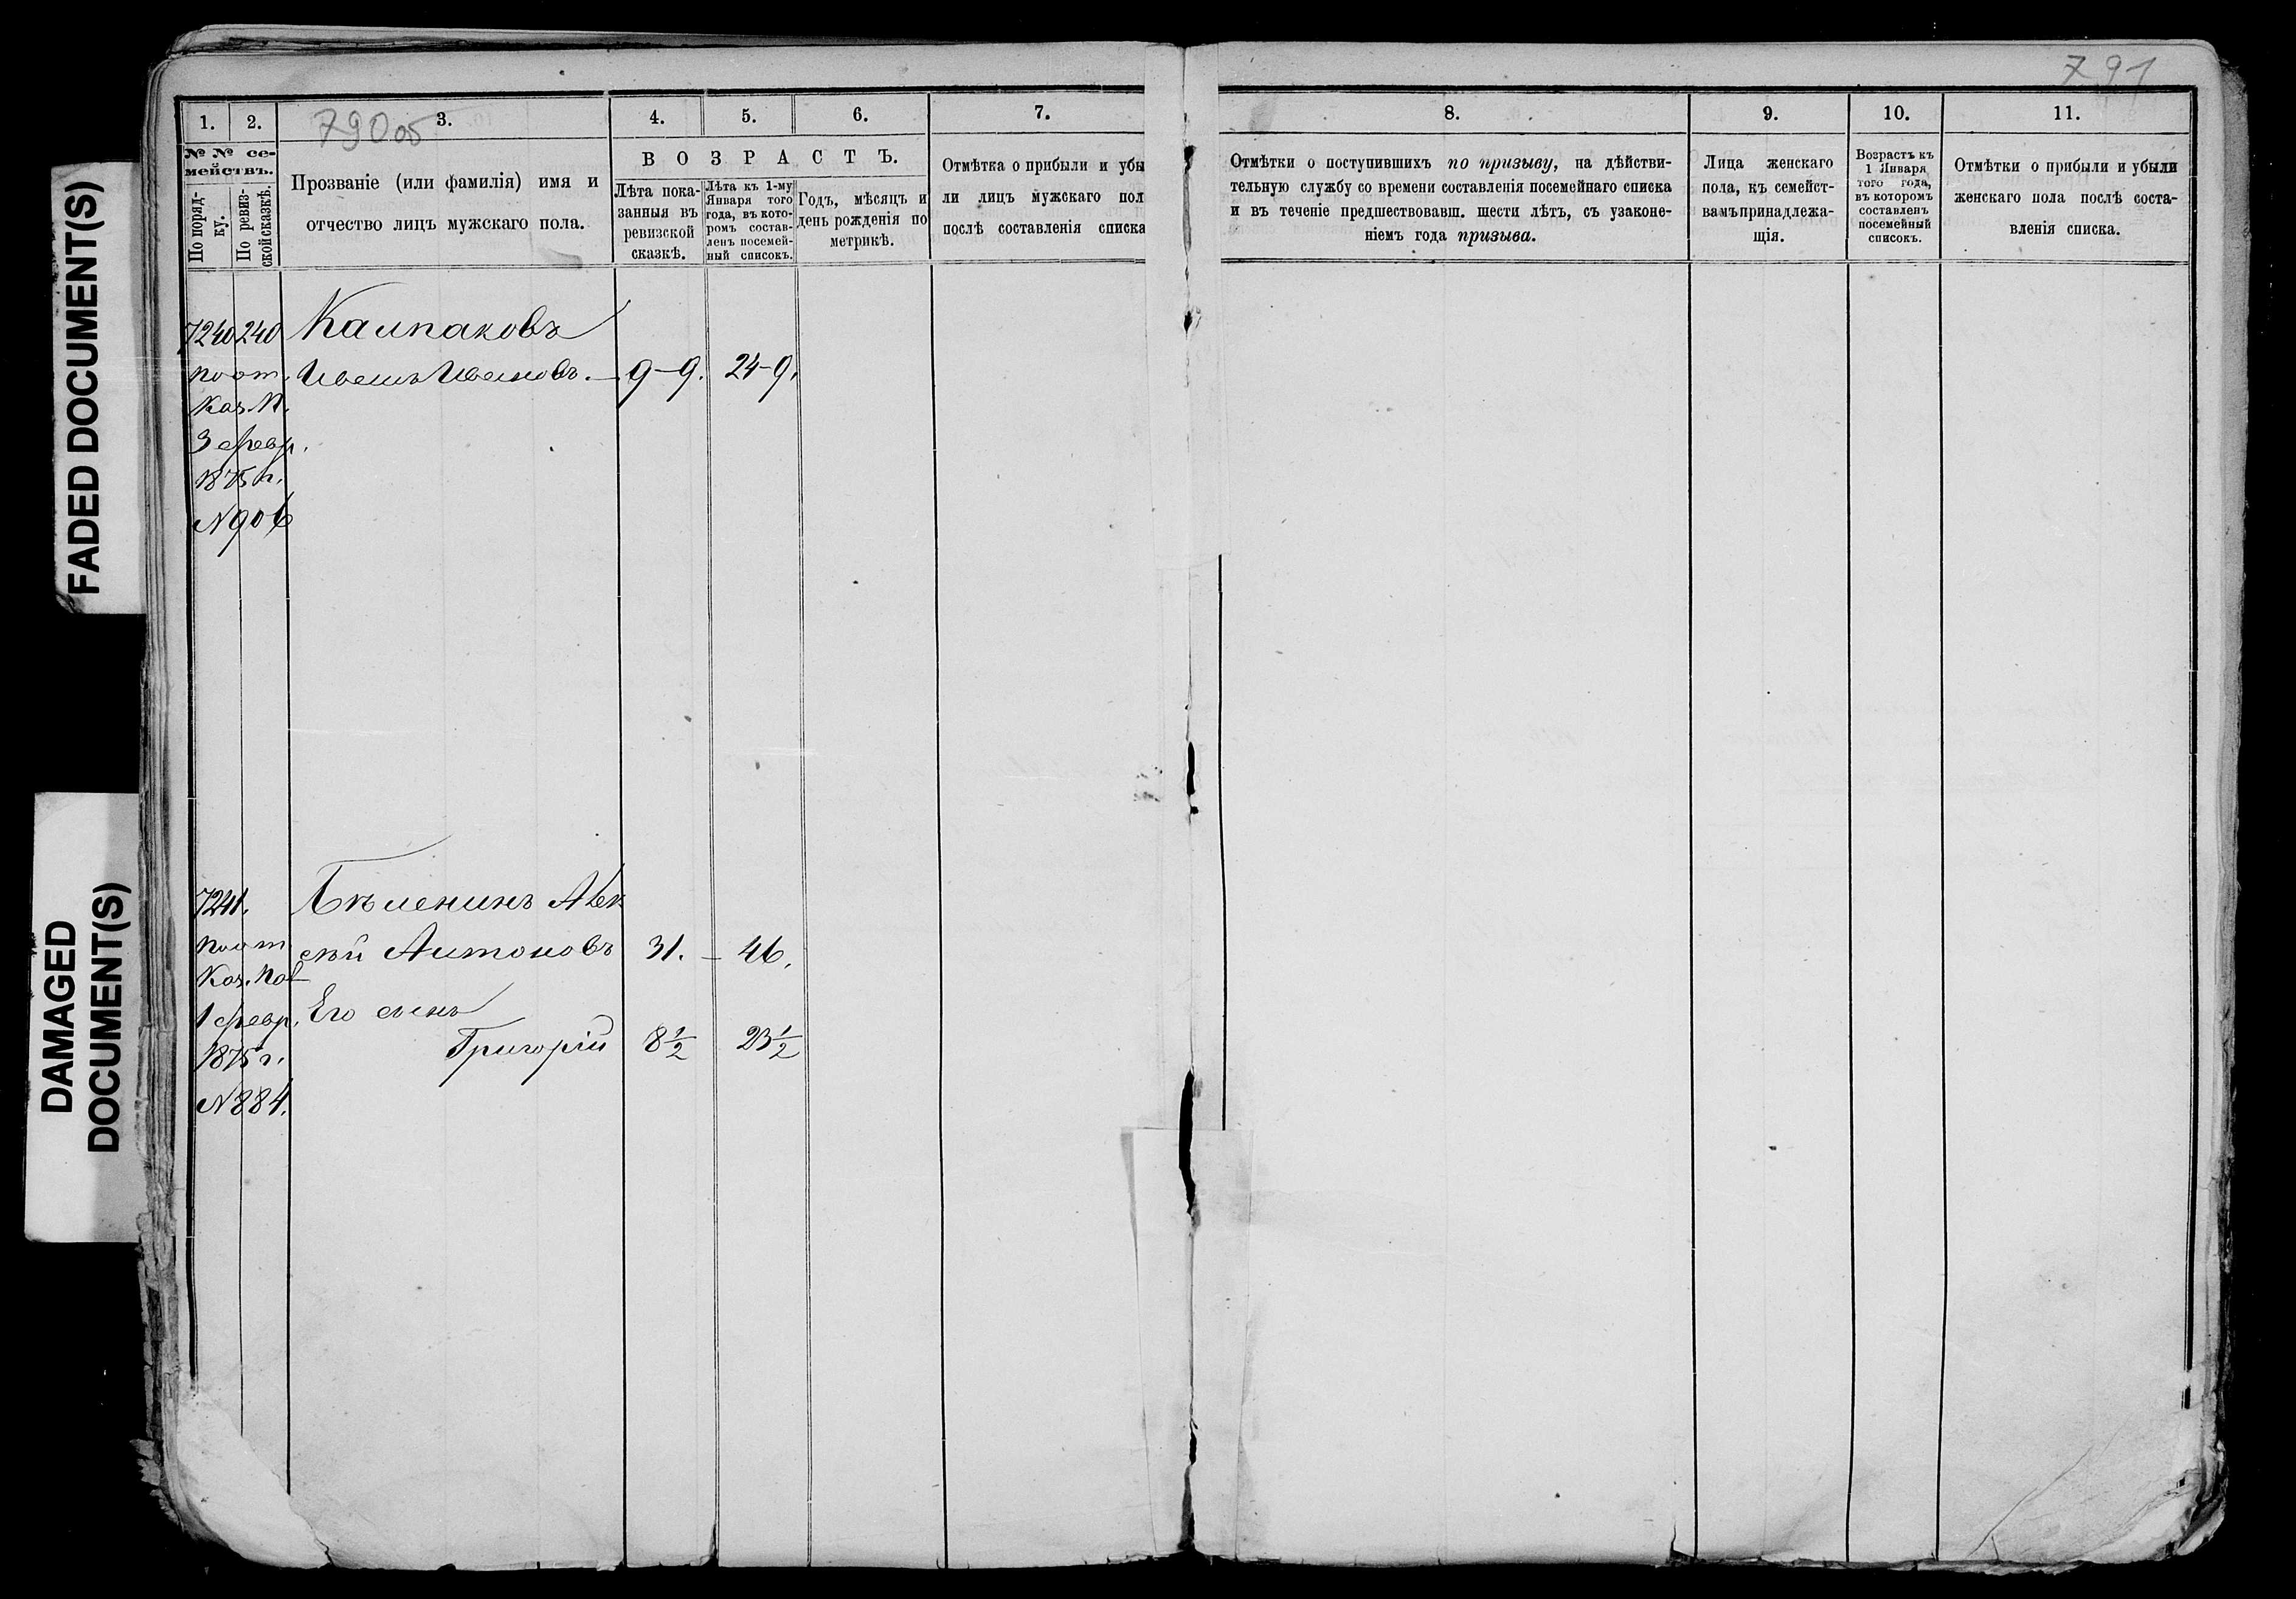 FADED DOCUMENT(S)
DAMAGED
DOCUMENT(S)
790об
791
1.
2.
3.
4.
5.
6.
7.
№ № се-
мействъ.
По поряд-
ку.
По ревиз-
ской сказкѣ.
Прозваніе (или фамилія) имя и
отчество лицъ мужскаго пола.
В О З Р А С Т Ъ.
Лѣта пока-
занныя въ
ревизской
сказкѣ.
Лѣта къ 1-му
Января того
года, въ кото-
ромъ состав-
ленъ посемей-
ный списокъ.
Годъ, мѣсяцъ и
день рожденія по
метрикѣ.
Отмѣтка о прибыли и убы
ли лицъ мужскаго пол
послѣ составленія списка
8.
9.
10.
11.
Отмѣтки о поступившихъ по призыву, на дѣйстви-
тельную службу со времени составленія посемейнаго списка
и въ теченіе предшествовавш. шести лѣтъ, съ узаконе-
ніемъ года призыва.
Лица женскаго
пола, къ семейст-
вамъ принадлежа-
щія.
Возрастъ къ
1 Января
того года,
въ которомъ
составленъ
посемейный
списокъ.
Отмѣтки о прибыли и убыли
женскаго пола послѣ соста-
вленія списка.
7240 240 Калпаковъ
по от. Иванъ Ивановъ. — 9-9. 24-9.
Каз. П.
3 февр.
1875 г.
№ 906
7241. Бѣленинъ Алек
по от сѣй Антоновъ 31. — 46.
Каз. Пал
1 февр. Его сынъ
1875 г. Григорій 8½ 23½
№ 884.